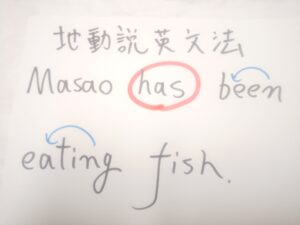 地動説英文法
Masao has been
eating fish.